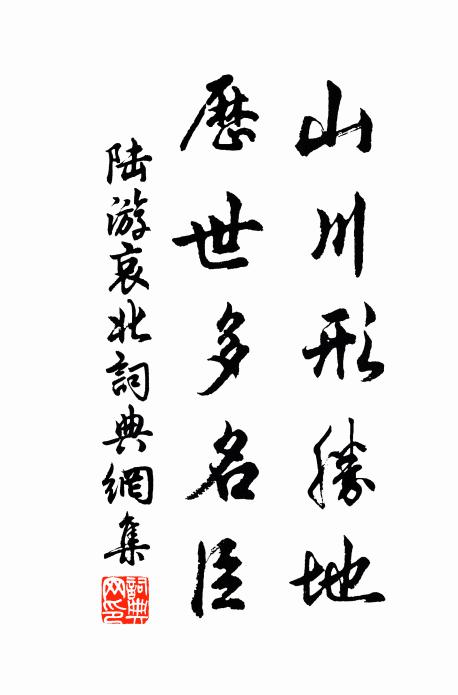 山川形勝地
歷世多名臣
陸游哀北詞典網集
詞典网印